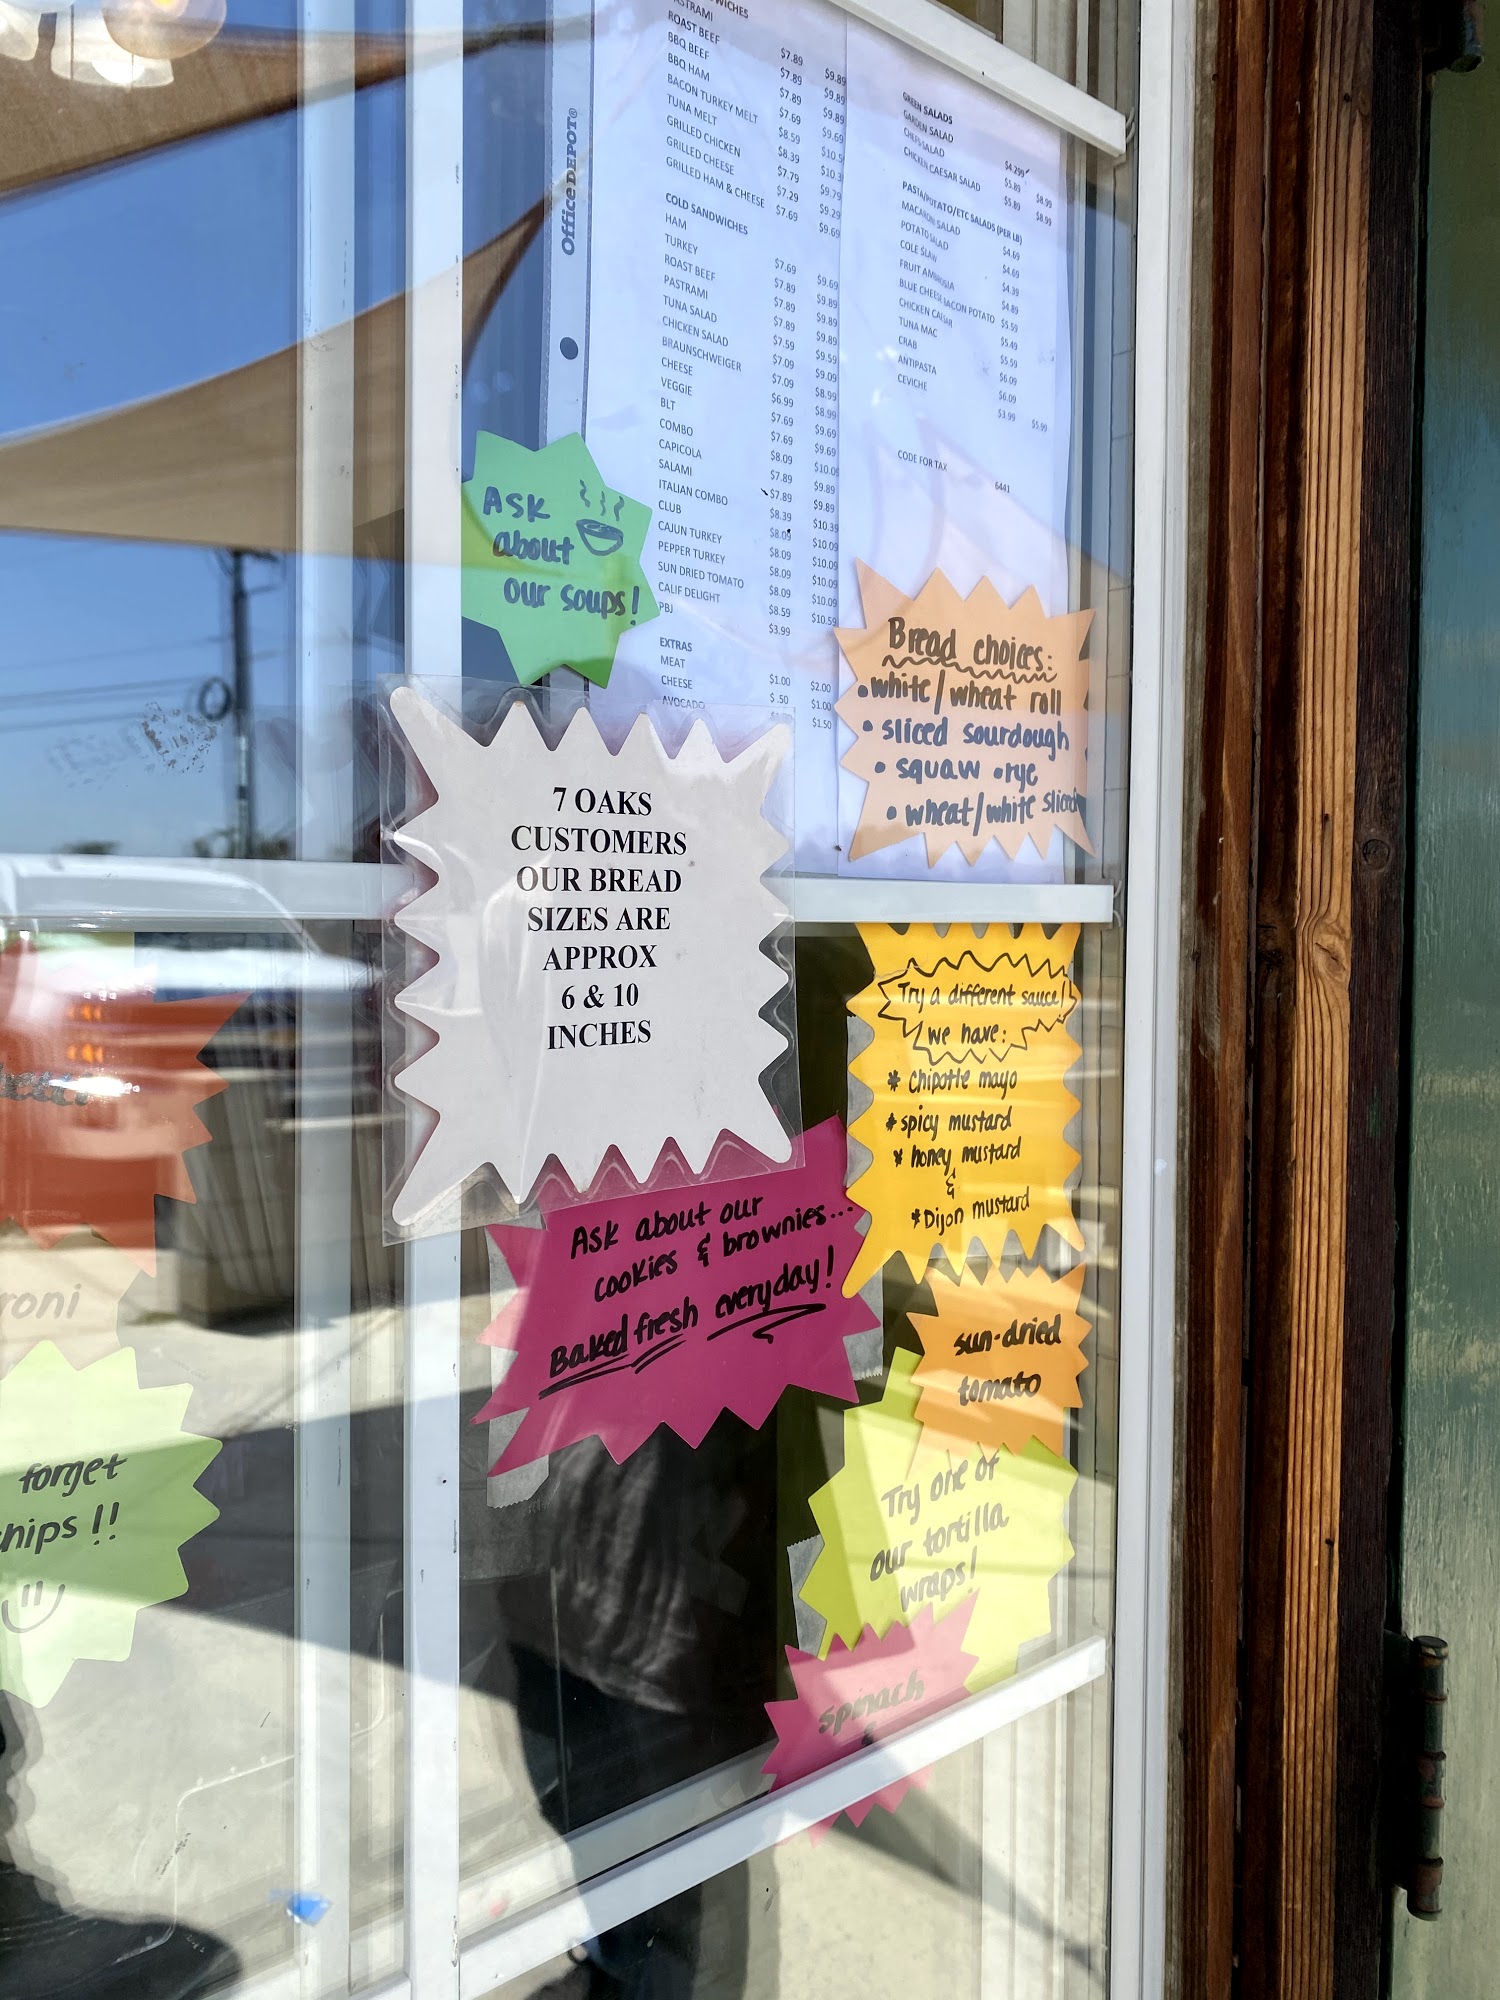 SANDWICHES
PASTRAMI $7.89 $9.89
ROAST BEEF $7.89 $9.89
BBQ BEEF $7.89 $9.89
BBQ HAM $7.69 $9.69
BACON TURKEY MELT $8.59 $10.5
TUNA MELT $8.39 $10.3
GRILLED CHICKEN $7.79 $9.79
GRILLED CHEESE $7.29 $9.29
GRILLED HAM & CHEESE $7.69 $9.69
COLD SANDWICHES
HAM $7.69 $9.69
TURKEY $7.89 $9.89
ROAST BEEF $7.89 $9.89
PASTRAMI $7.89 $9.89
TUNA SALAD $7.59 $9.59
CHICKEN SALAD $7.09 $9.09
BRAUNSCHWEIGER $7.09 $8.99
CHEESE $6.99 $8.99
VEGGIE $7.69 $9.69
BLT $7.69 $9.69
COMBO $8.09 $10.0
CAPICOLA $7.89 $9.89
SALAMI $7.89 $9.89
ITALIAN COMBO $8.39 $10.39
CLUB $8.09 $10.09
CAJUN TURKEY $8.09 $10.09
PEPPER TURKEY $8.09 $10.09
SUN DRIED TOMATO $8.09 $10.09
CALIF DELIGHT $8.59 $10.59
PBJ $3.99
EXTRAS
MEAT $1.00 $2.00
CHEESE $ .50 $1.00
AVOCADO $1.50
GREEN SALADS
GARDEN SALAD $4.299
CHEFS SALAD $5.89 $8.99
CHICKEN CAESAR SALAD $5.89 $8.99
PASTA/POTATO/ETC SALADS (PER LB)
MACARONI SALAD $4.69
POTATO SALAD $4.69
COLE SLAW $4.39
FRUIT AMBROSIA $4.89
BLUE CHEESE BACON POTATO $5.59
CHICKEN CAESAR $5.49
TUNA MAC $5.59
CRAB $6.09
ANTIPASTA $6.09
CEVICHE $3.99 $5.99
CODE FOR TAX 6441
Office DEPOT®
ASK
about
our soups!
Bread choices:
• white/wheat roll
• sliced sourdough
• squaw • rye
• wheat/white sliced
7 OAKS
CUSTOMERS
OUR BREAD
SIZES ARE
APPROX
6 & 10
INCHES
Try a different sauce!
we have:
* chipotle mayo
* spicy mustard
* honey mustard
&
* Dijon mustard
Ask about our
cookies & brownies...
Baked fresh everyday!
sun-dried
tomato
Try one of
our tortilla
wraps!
spinach
&
roni
forget
hips!!